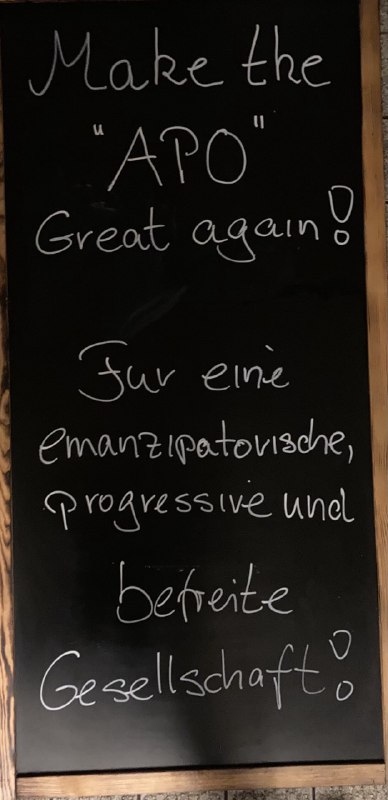 Make the
"APO"
Great again!
Fur eine
emanzipatorische,
progressive und
befreite
Gesellschaft!